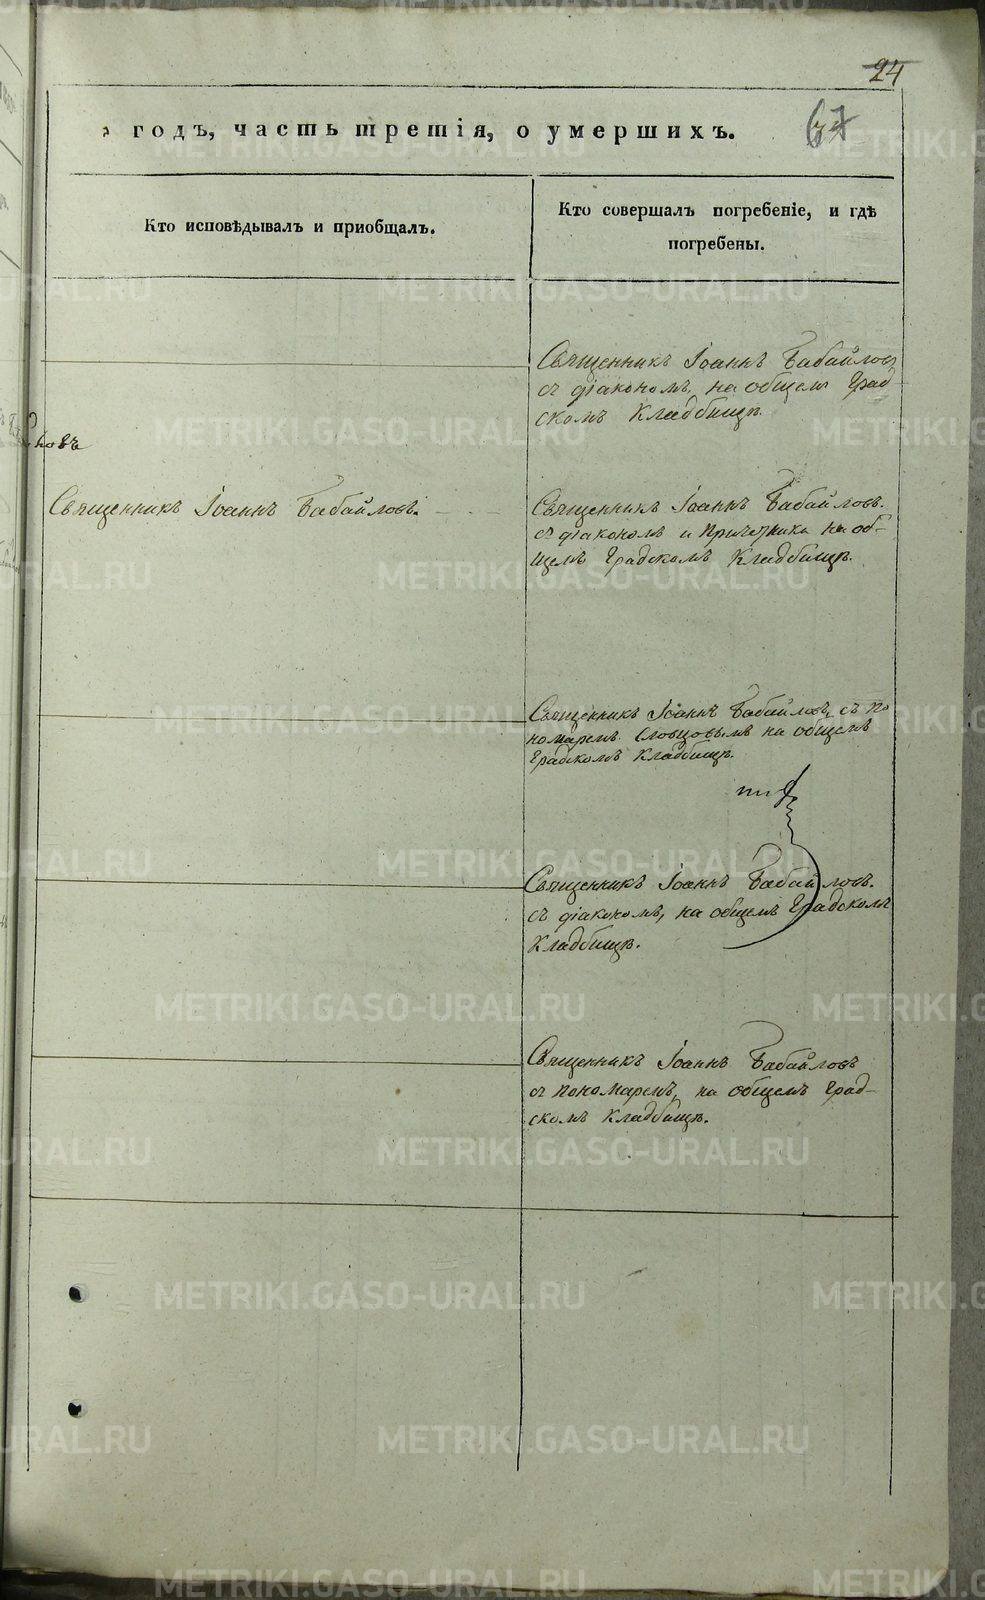 24
годъ, часть третія, о умершихъ.
Кто исповѣдывалъ и пріобщалъ.
Кто совершалъ погребеніе, и гдѣ
погребены.
Священникъ Іоаннъ Бабайловъ
съ діакономъ, на общемъ Град-
скомъ Кладбищѣ.
ковъ
Священникъ Іоаннъ Бабайловъ.
Священникъ Іоаннъ Бабайловъ.
съ діакономъ и причетники на об-
щемъ Градскомъ Кладбищѣ.
Священникъ Іоаннъ Бабайловъ, съ по
номаремъ Словцовымъ на общемъ
Градскомъ Кладбищѣ.
Священникъ Іоаннъ Бабайловъ.
съ діакономъ, на общемъ Градскомъ
Кладбищѣ.
Священникъ Іоаннъ Бабайловъ
съ пономаремъ, на общемъ Град-
скомъ Кладбищѣ.
METRIKI.GASO-URAL.RU